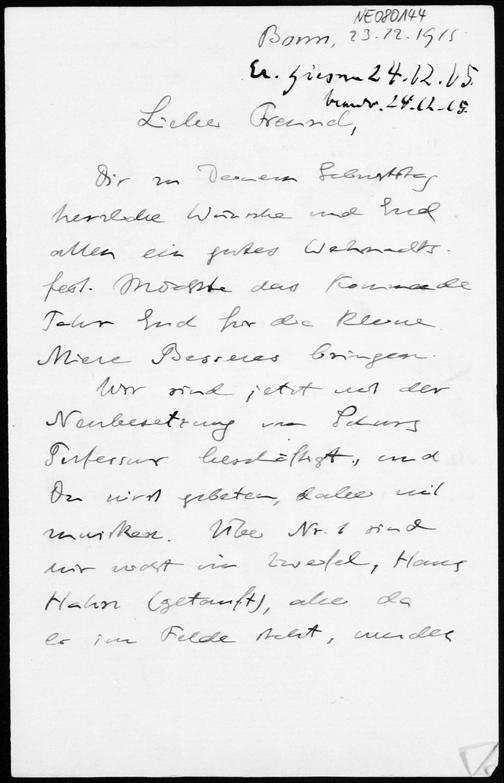 NE080144
Bonn, 23.12.1915
Er. Giessen 24.12.15.
beantw. 24.12.15.
Lieber Freund,
Dir zu Deinem Geburtstag
herzliche Wünsche und Euch
allen ein gutes Weihnachts-
fest. Möchte das kommende
Jahr Euch für die kleine
Besseres bringen.
Wir sind jetzt mit der
Neubesetzung von Schurs
Professur beschäftigt, und
Du wirst gebeten, dabei mit
zuwirken. Über Nr. 1 sind
wir nicht im Zweifel, Hans
Hahn (getauft), aber da
er im Felde steht, werden